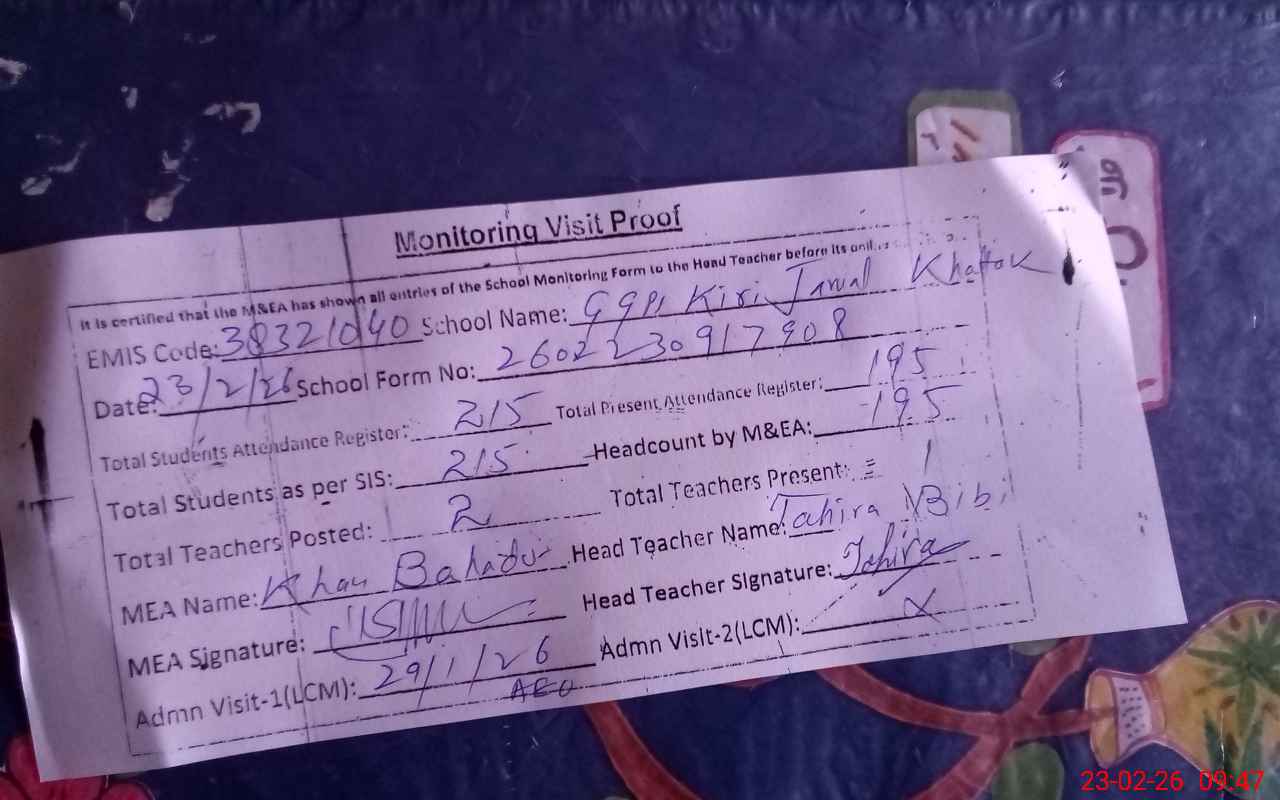 Monitoring Visit Proof
It is certified that the M&EA has shown all entries of the School Monitoring Form to the Head Teacher before its
EMIS Code: 38321040 School Name: GGPS Kiri Jamal Khattak
Date: 23/2/26 School Form No: 2602230917908
Total Students Attendance Register: 215 Total Present Attendance Register: 195
Total Students as per SIS: 215 Headcount by M&EA: 195
Total Teachers Posted: 2 Total Teachers Present: 1
MEA Name: Khan Bahadur Head Teacher Name: Tahira Bibi
MEA Signature: Head Teacher Signature: Tahira
Admn Visit-1(LCM): 29/1/26 Admn Visit-2(LCM): X
AEO
23-02-26 09:47